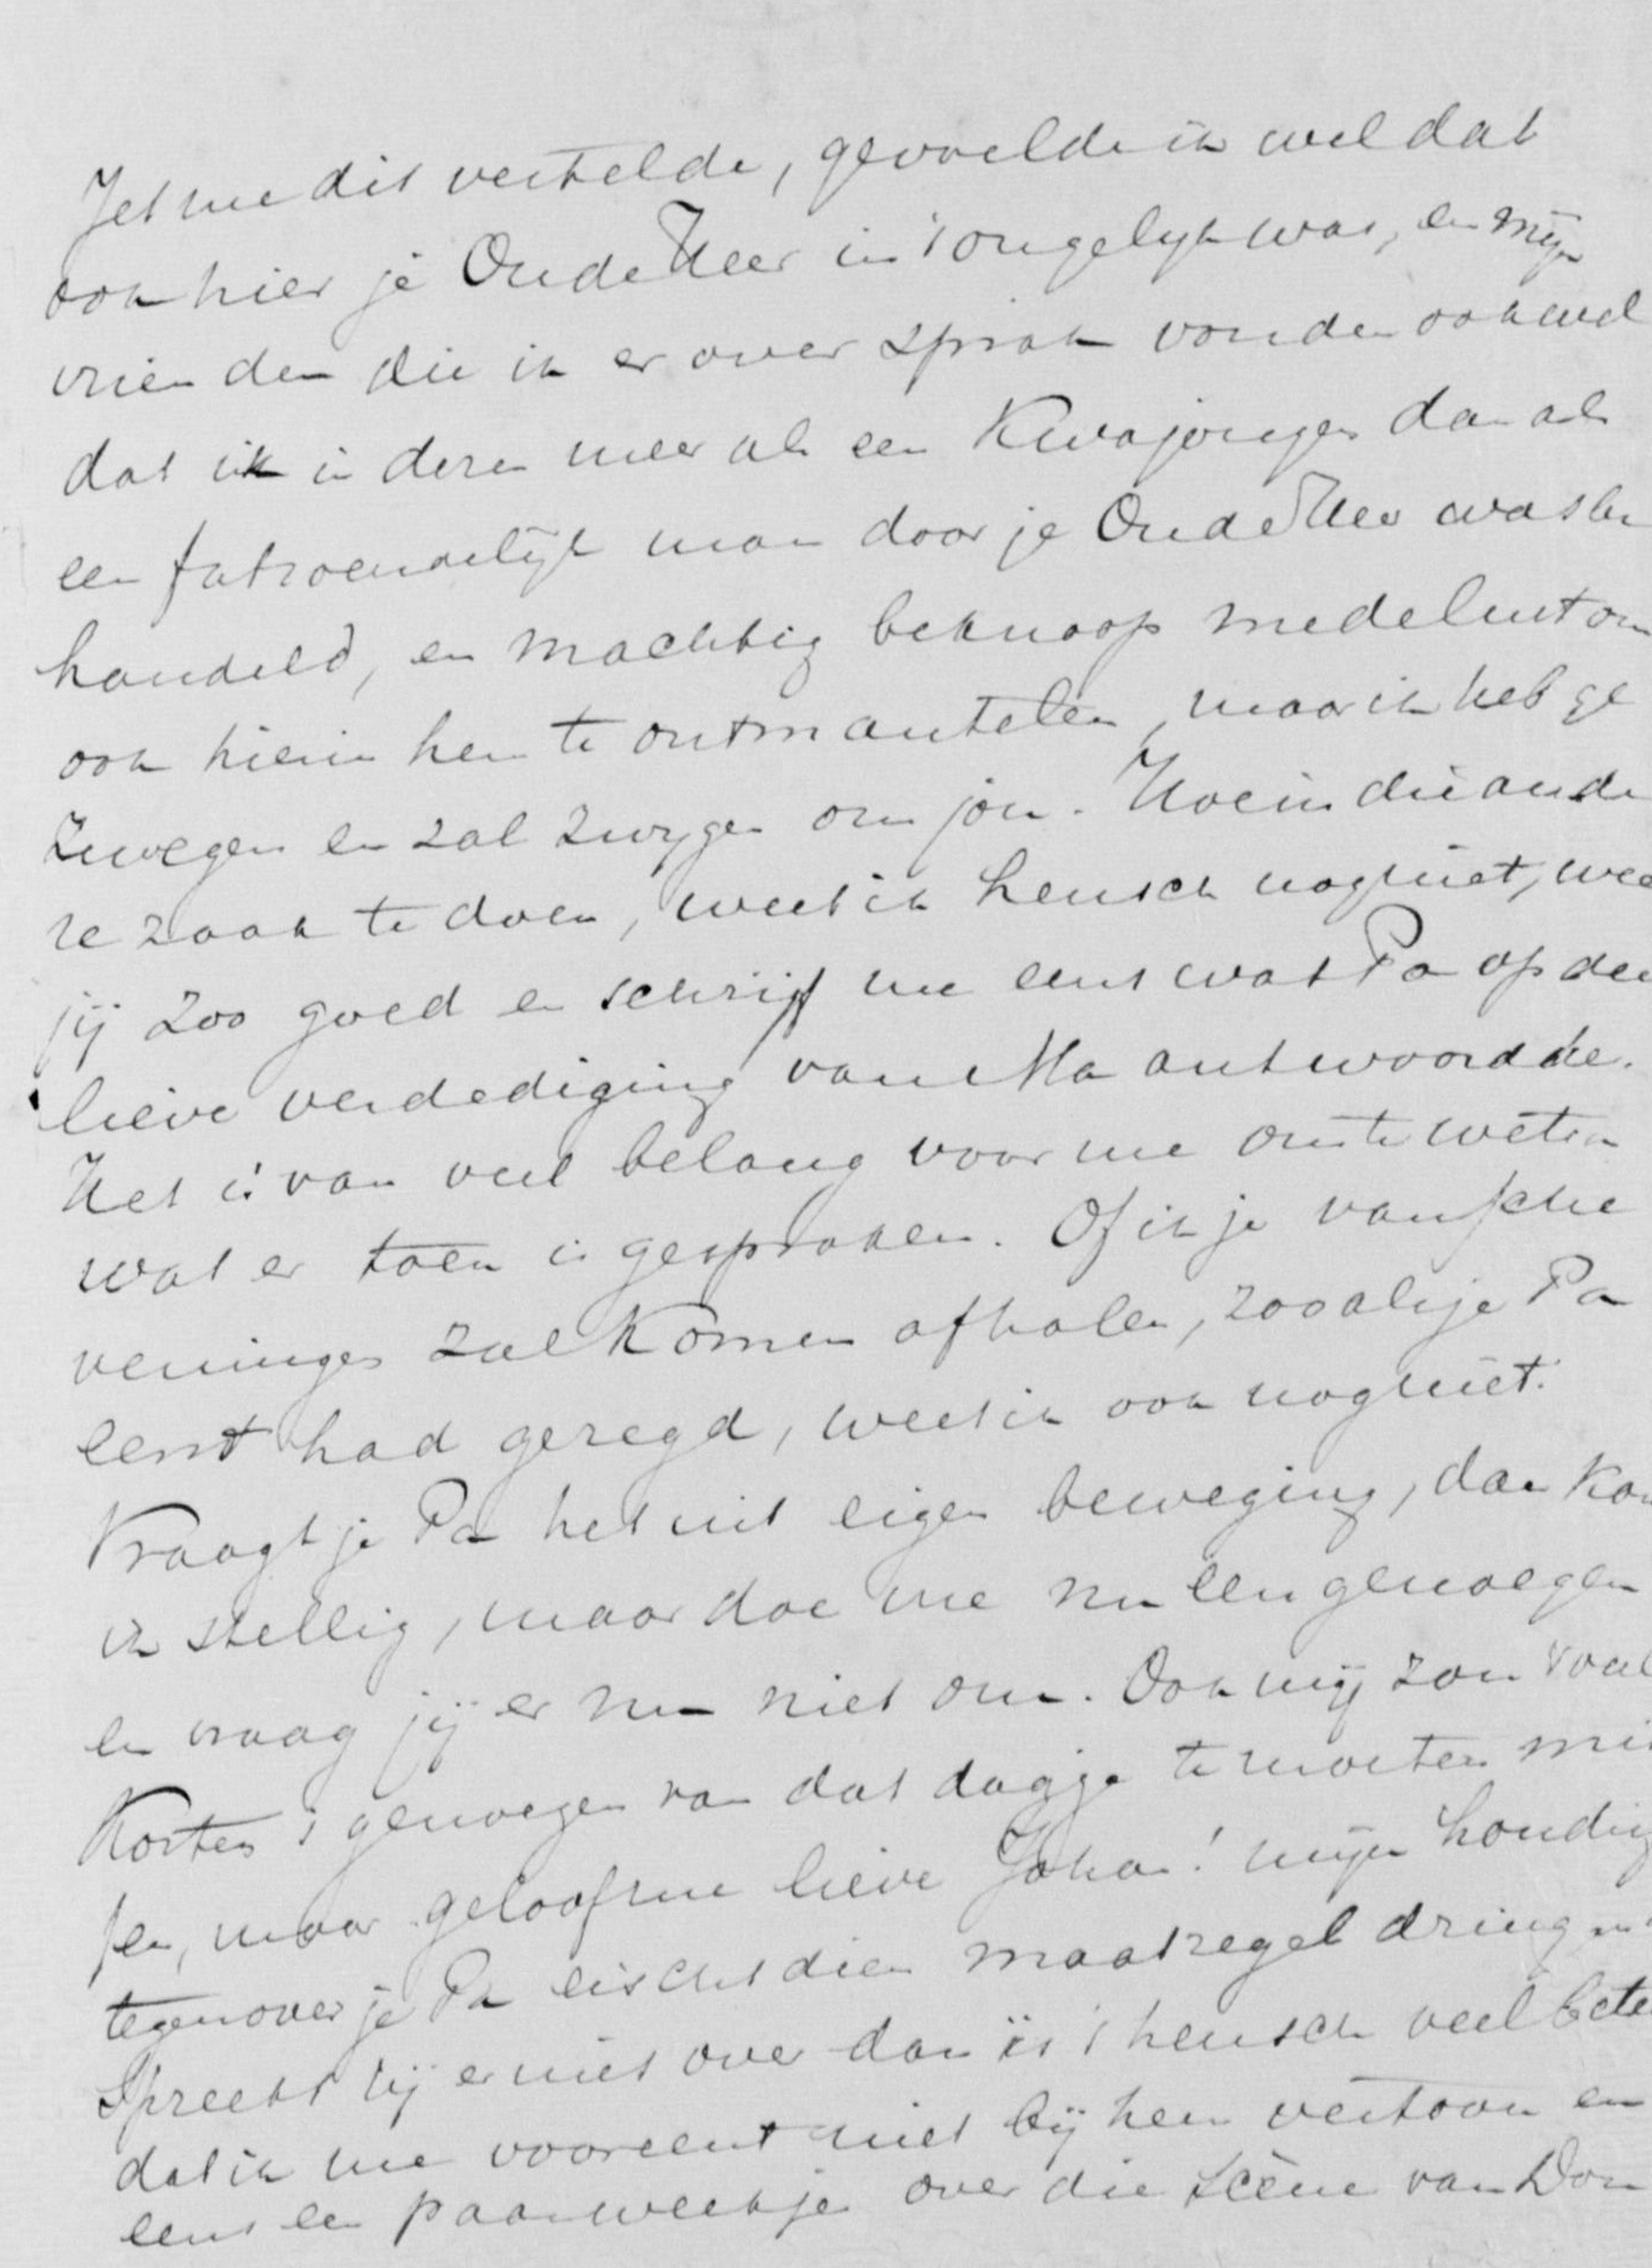 Jet me dit vertelde, gevoelde ik wel dat
ook hier je Oude Heer in 't ongelyk was, en mijn
vrienden die ik er over sprak vonden ook wel
dat ik in dezen meer als een Kwajongen dan als
een fatsoenelijk man door je Oude Heer was be
handeld, en machtig beknoop me de lust om
ook hierin hem te ontmantelen, maar ik heb ge
zwegen en zal zwygen om jou. Hoe in die ande
re zaak te doen, weet ik heusch nog niet, wee
jij zoo goed en schrijf me eens wat Pa op de
lieve verdediging van Ma antwoordde.
Het is van veel belang voor me om te weten
wat er toen is gesproken. Of ik je van Sche
veningen zal Komen afhalen, zooals je Pa
eens had gezegd, weet ik ook nog niet.
Vraagt je Pa het uit eigen beweging, dan Kom
ik stellig, maar doe me nu een genoegen
en vraag jij er nu niet om. Ook mij zou 't veel
Kosten 't genoegen van dat dagje te moeten mis
sen, maar geloof me lieve Johan! mijn houding
tegenover je Pa eischt dien maatregel dringend
Spreekt hij er niet over dan is 't heusch veel bete
dat ik me vooreerst niet bij hem vertoon en
eens een paar weekjes over die scène van Don